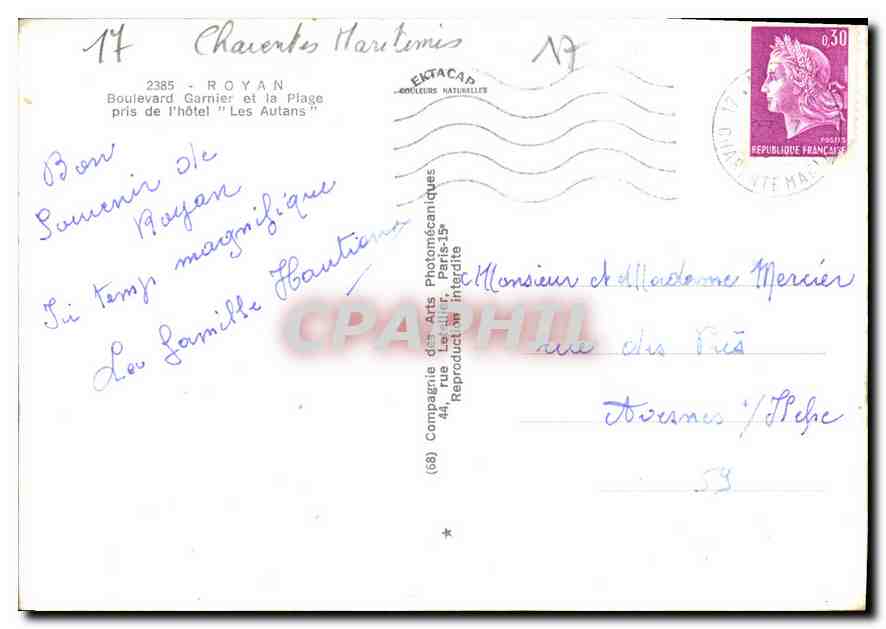 17 Charentes Maritimes 17
2385 - ROYAN
Boulevard Garnier et la Plage
pris de l'hôtel "Les Autans"
EKTACAP
COULEURS NATURELLES
0,30
POSTES
REPUBLIQUE FRANÇAISE
17
CHARENTE MAR
Bon
Souvenir de
Royan
Ici temp magnifique
La famille
(68) Compagnie des Arts Photomécaniques
44, rue Letellier, Paris-15e
Reproduction interdite
*
CPAPHIL
Monsieur et Madame Mercier
rue des Prés
Avesnes s/Helpe
59